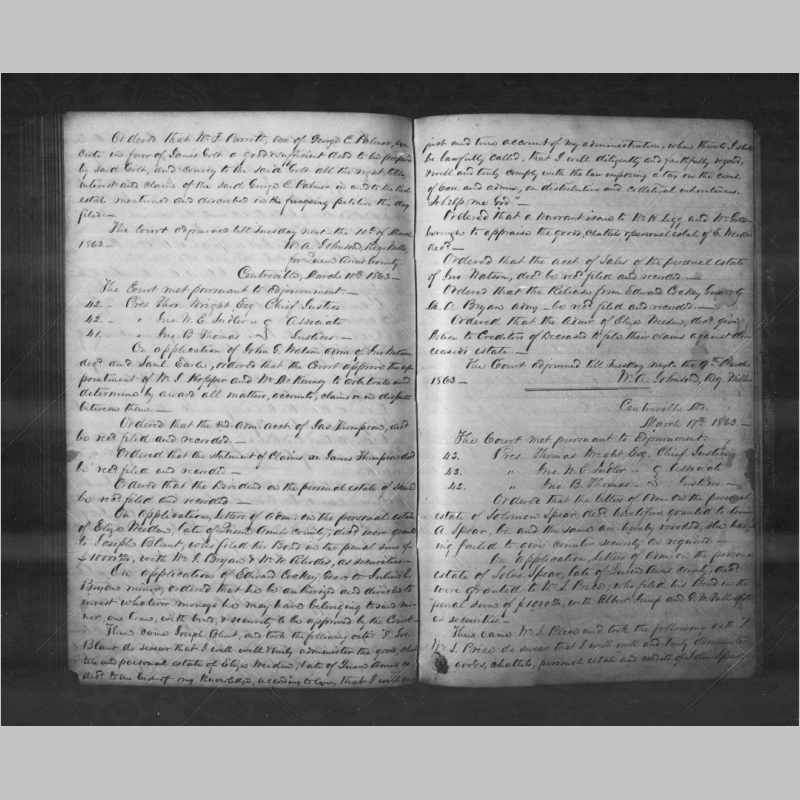 Ordered that Wm. F. Parrott, exr. of George C. Palmer, exe
cute in favor of James Colt a good & sufficient deed to be prepared
by said Colt, and convey to the said Colt all the right, title,
interest and claims of the said George C. Palmer in and to the Real
estate mentioned and described in the foregoing petition this day
filed —
The Court adjourned till Tuesday next the 10th of March
1863 — W. A. Johnson, Reg. Wills
for Queen Anns County
Centreville, March 10th 1863 —
The Court met pursuant to adjournment —
42 — Pres. Thos. Wright Esq Chief Justice
42 — " Jno. W. E. Sudler — Associate
41. " Jno. B. Thomas — Justices —
On application of John G. Watson admr. of Jno. Watson
decd. and Saml. Earle, ordered that the Court approve the ap
pointment of W. J. Hopper and Wm. McKenney to arbitrate and
determine by award all matters, accounts, claims or in dispute
between them —
Ordered that the adm. acct. of Jas. Thompson, decd
be recd. filed and recorded —
Ordered that the Statement of Claims on James Thompson's decd
be recd. filed and recorded —
Ordered that the Dividend on the personal estate of same
be recd. filed and recorded —
On Application, letters of Adm. on the personal estate
of Eliza Weeden, late of Queen Ann's County, decd. were granted
to Joseph Blunt, who filed his Bond in the penal sum of
with Wm. J. Bryan & Wm. W. Rhodes, as securities —
On application of Edward Coskey, Guar. to
Bryan minor, ordered that he be authorized and directed to
invest whatever moneys he may have belonging to said mi
nor, on loan, with bond & security to be approved by the Court —
Then came Joseph Blunt, and took the following oath: "I Jos.
Blunt do swear that I will well & truly administer the goods, chat
tels and personal estate of Eliza Weeden, late of Queen Anns co.
decd. to the best of my knowledge, according to law, that I will
just and true account of my administration, when thereto I shall
be lawfully called, that I will diligently and faithfully regard,
and well and truly comply with the law imposing a tax on the comms.
of exrs. and admrs., on distributive and collateral inheritances.
So help me God" —
Ordered that a warrant issue to Wm. H. Legg and Wm.
to appraise the goods, chattels & personal estate of E. Weeden
decd. —
Ordered that the acct. of Sales of the personal estate
of Jno. Watson, decd. be recd. filed and recorded —
Ordered that the Release from Edward Coskey Guar. to
A. Bryan admr. — be recd. filed and recorded —
Ordered that the Admr. of Eliza Weeden, decd. give
Notice to Creditors of Deceased to file their claims against de
ceaseds estate —
The Court adjourned till Tuesday next, the 17th March
1863 — W. A. Johnson, Reg. Wills
Centreville Md.
March 17th 1863 —
The Court met pursuant to adjournment —
43. Pres. Thomas Wright Esq. Chief Justice
43. " Jno. W. E. Sudler — Associate
42. " Jno. B. Thomas — Justices —
Ordered that the letters of Adm. on the personal
estate of Solomon Spear, decd. heretofore granted to
A. Spear, be and the same are hereby revoked, she hav
ing failed to give counter security as required —
On application, letters of Adm. on the personal
estate of Solo. Spear, late of Queen Anns county, decd.
were granted to Wm. J. Price, who filed his Bond in the
penal sum of with Albert and
as securities —
Then came Wm. J. Price and took the following oath "I
Wm. J. Price do swear that I will well and truly administer
goods, chattels, personal estate and credits of Solom Spear